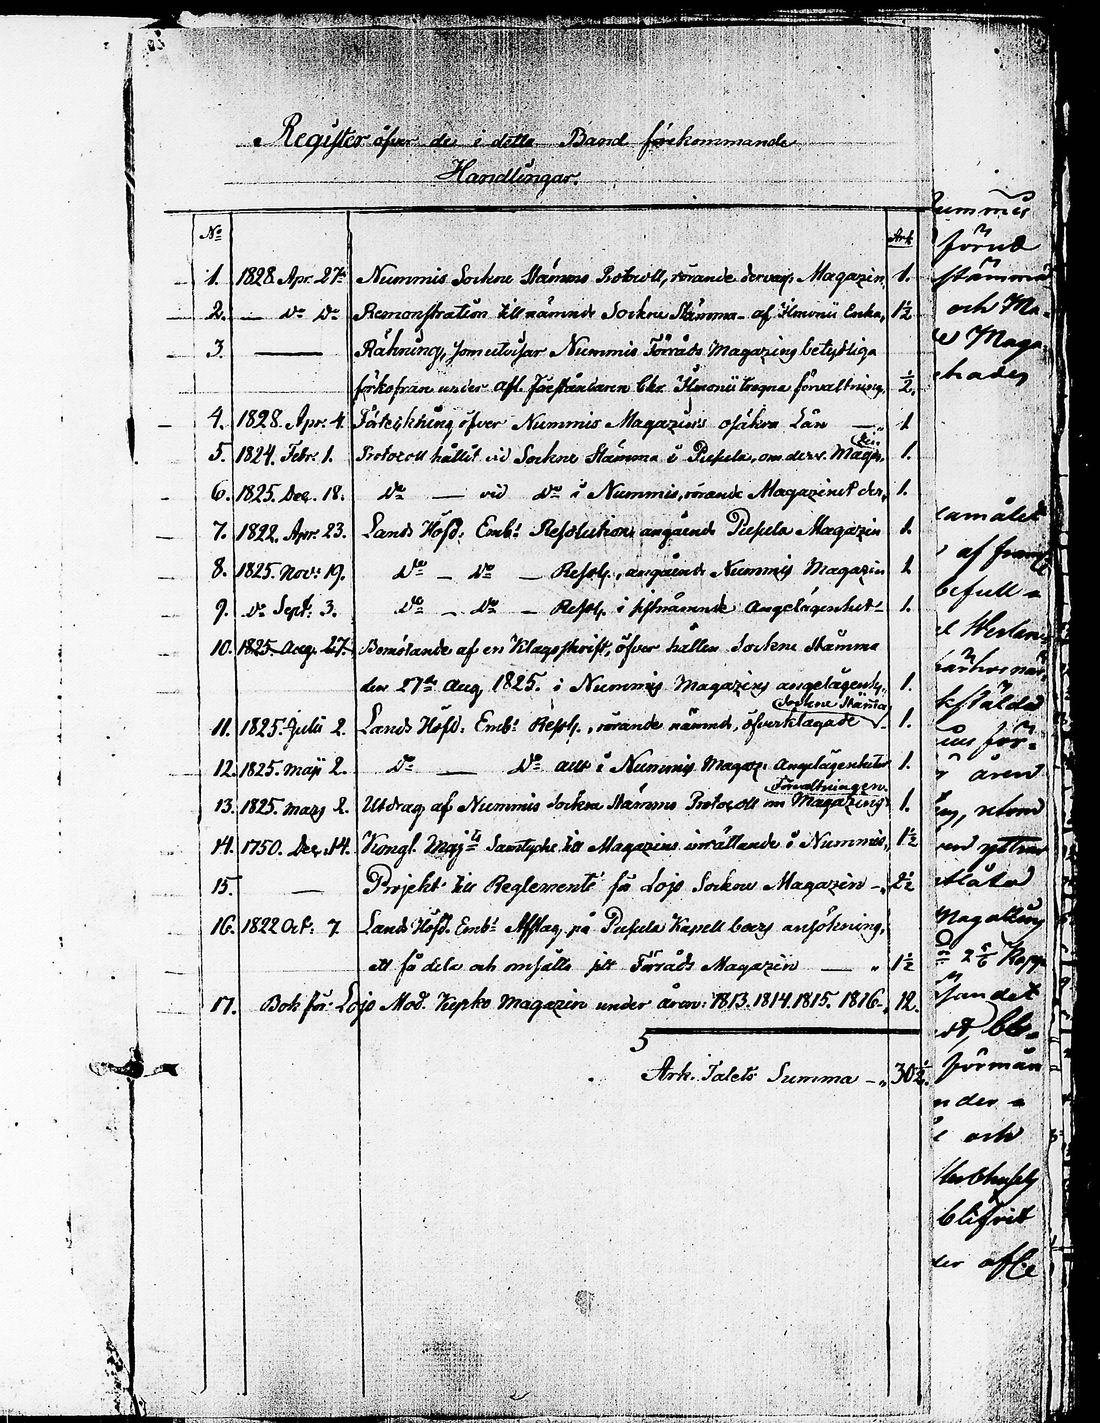 Register öfver de i detta Band förekommande
Handlingar.
No Ark
1. 1828. Apr. 27. Nummis Sockne Stämmo Protocoll, rörande dervar. Magazin 1.
2. — Do Do Remonstration till nämnde Sockne Stämma af Enka, 1½
3. — Räkning, som utvisar Nummis Förråds Magazins betydliga
under Afl. Föreståndaren trogna förvaltning, ½.
4. 1828. Apr. 4. Förteckning öfver Nummis Magazins osäkra Lån — 1
5. 1824. Febr. 1. Protocoll hållit vid Sockne Stämma i Pusula, om derv. Magaz. 1.
6. 1825. Dec. 18. Do — vid Do i Nummis, rörande Magazinet der, 1.
7. 1822. Apr. 23. Lands Höfd. Emb:s Resolution angående Pusula Magazin 1.
8. 1825. Nov: 19. Do — Do — Resol., angående Nummis Magazin 1
9. Do Sept: 3. Do — Do — Resol. i sistnämnde Angelägenhet 1.
10. 1825. Aug. 27. Bemötande af en Klagoskrift, öfver hållen Sockne Stämma
den 27de Aug. 1825. i Nummis Magazins angelägenh. 1.
Sockne Stämma
11. 1825. Julii 2. Lands Höfd. Emb:s Resol., rörande nämnde, öfverklagade 1.
12. 1825. Maji 2. Do — Do i Nummis Magaz. Angelägenheter 1.
Förvaltningen.
13. 1825. Mars 2. Utdrag af Nummis Sockne Stämmo Protocoll om Magazins 1.
14. 1750. Dec. 14. Kongl. Maj:ts Samtycke till Magazins inrättande i Nummis, 1½
15. — Projekt till Reglemente för Lojo Sockne Magazin — 2½
16. 1822 Oct: 7. Lands Höfd. Emb:s Afslag, på Pusula Kapell boers ansökning,
att få dela och omsätta sitt Förråds Magazin — 1½
17. Bok för Lojo Mod. Kyrko Magazin under åren: 1813. 1814. 1815. 1816. 12.
Ark. Talets Summa — 30½.
Nummis
förut
stämma
och Ma-
Maga
befull-
för-
åren
2 Kapp
förmån
och
blifvit